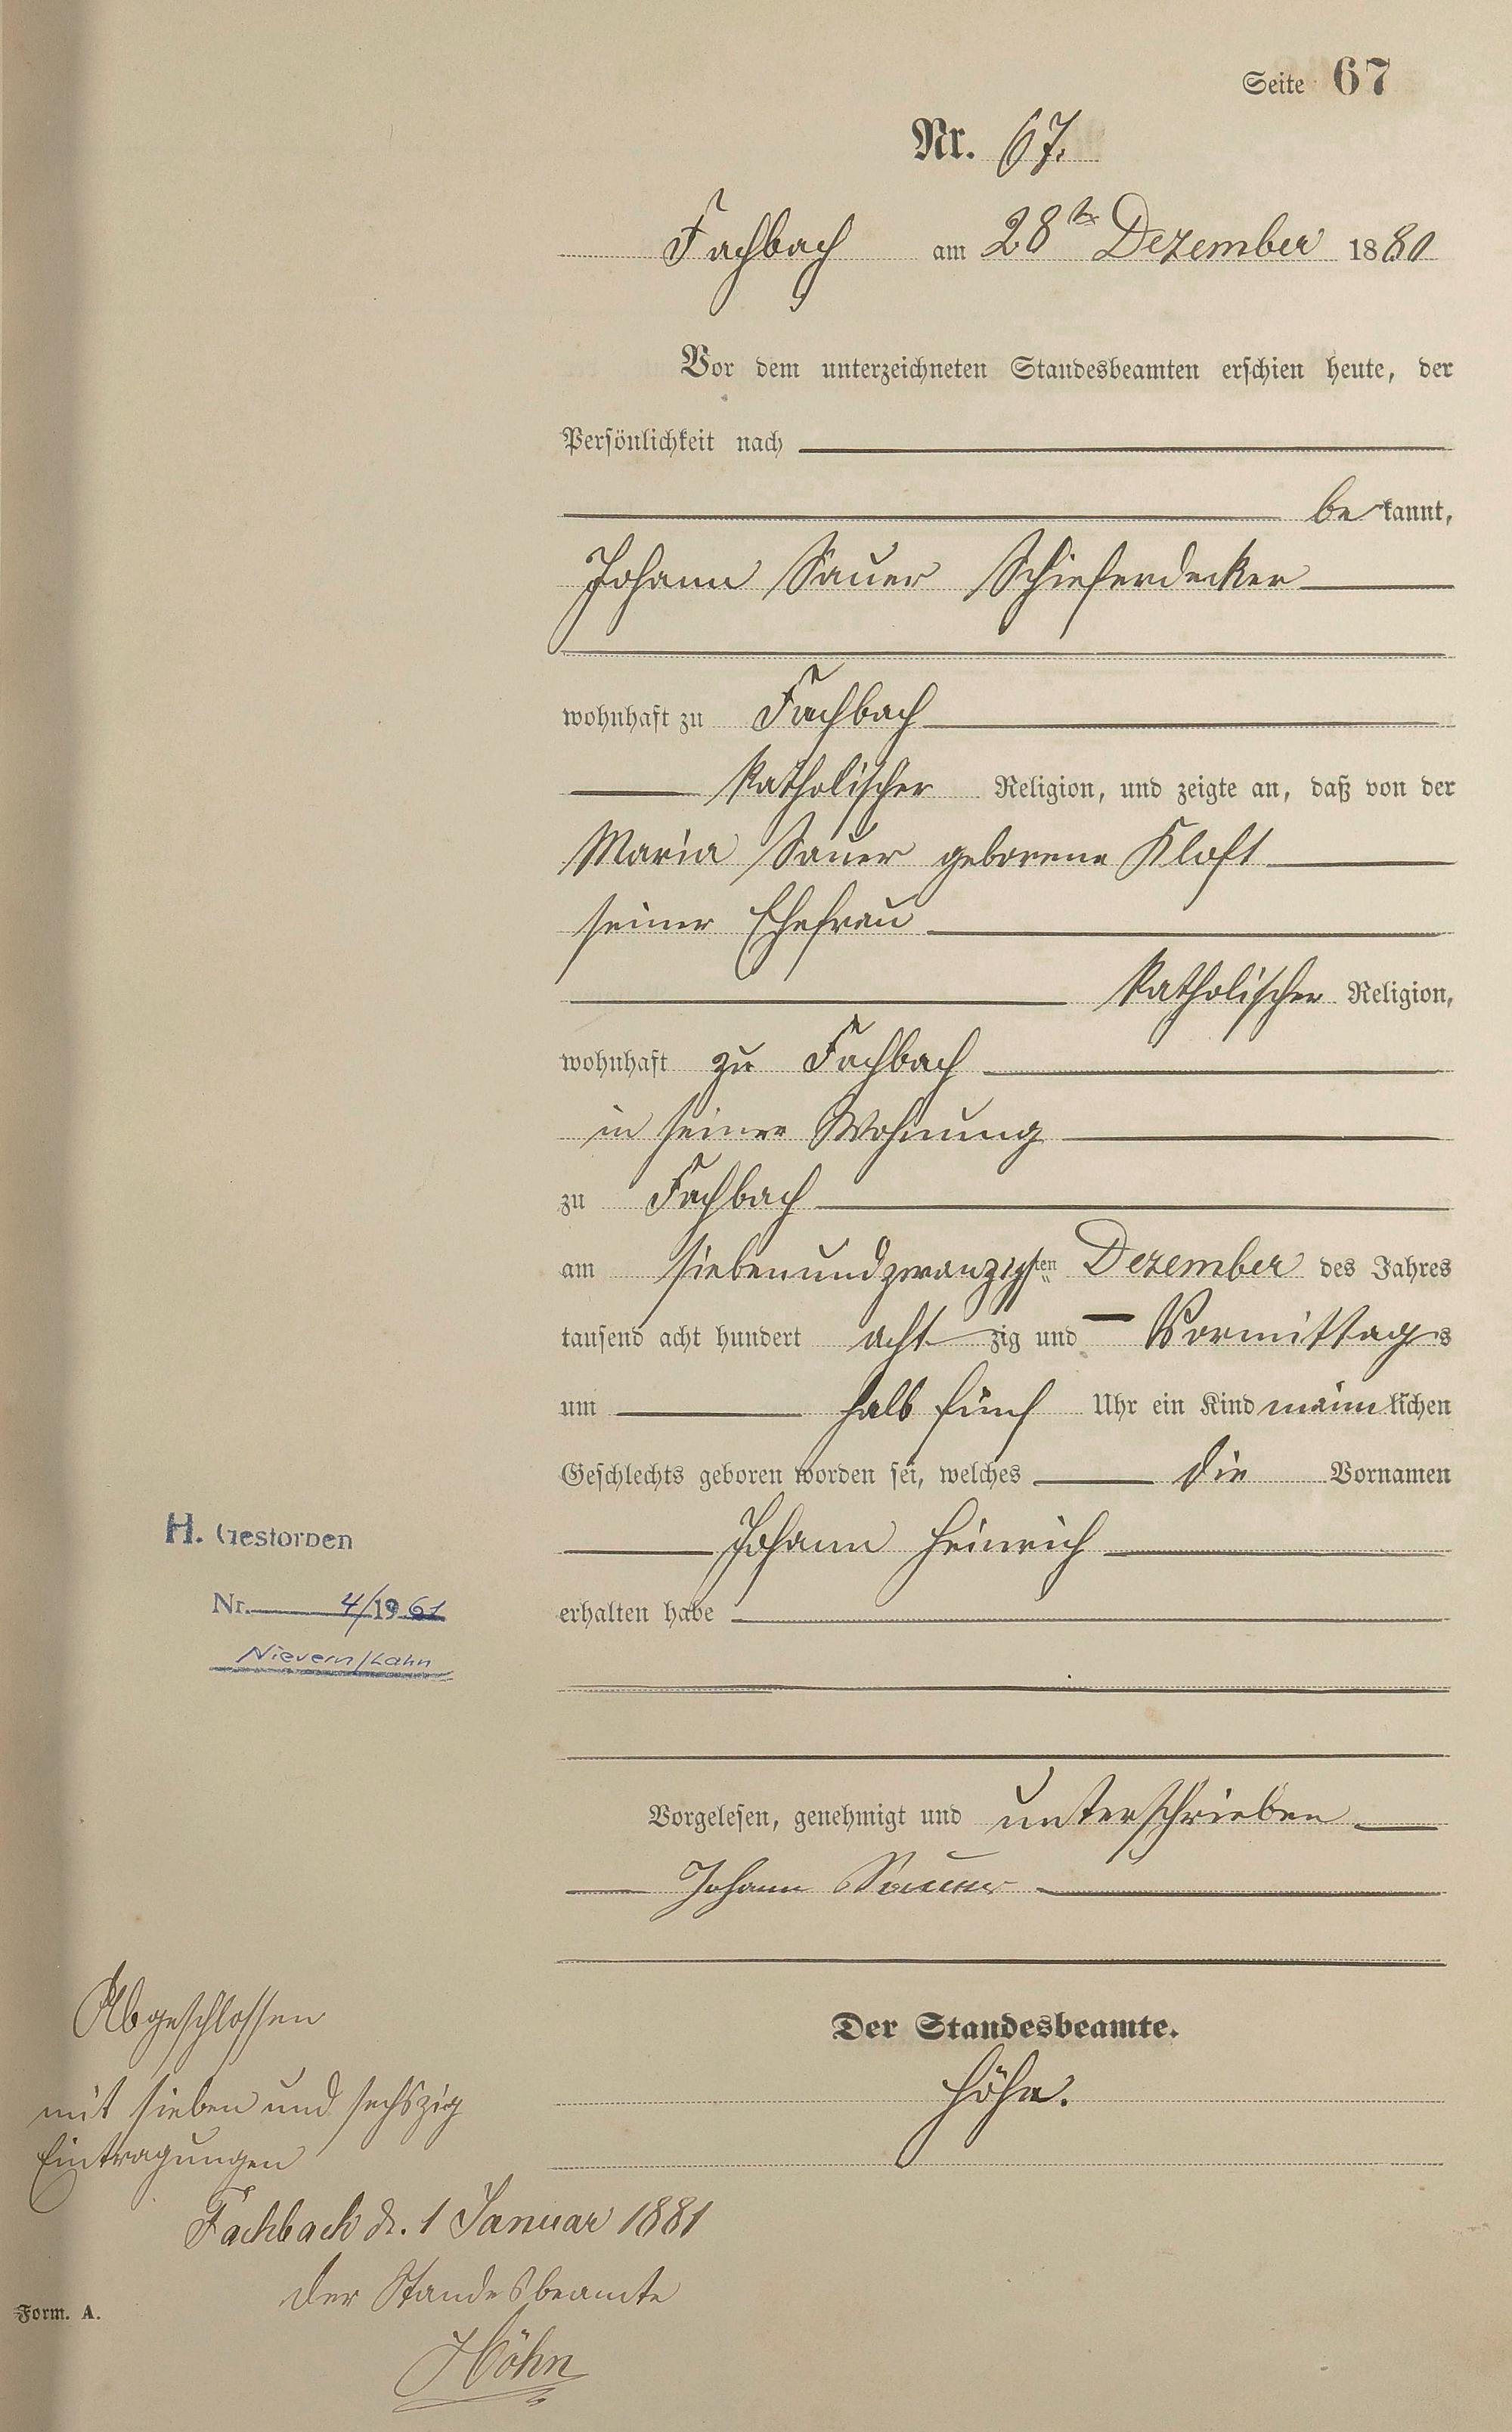 Seite 67
Nr. 67.
Fachbach am 28ten Dezember 1880
Vor dem unterzeichneten Standesbeamten erschien heute, der
Persönlichkeit nach
be kannt,
Johann Sauer Schieferdecker
wohnhaft zu Fachbach
katholischer Religion, und zeigte an, daß von der
Maria Sauer geborene Kloft
seiner Ehefrau
katholischer Religion,
wohnhaft zu Fachbach
in seiner Wohnung
zu Fachbach
am siebenundzwanzigsten Dezember des Jahres
tausend acht hundert acht zig und Vormittags
um halb fünf Uhr ein Kind männlichen
Geschlechts geboren worden sei, welches die Vornamen
Johann Heinrich
erhalten habe
H. Gestorben
Nr. 4/1961
Nievern/Lahn
Vorgelesen, genehmigt und unterschrieben
Johann Sauer
Der Standesbeamte.
Höhn.
Abgeschlossen
mit sieben und sechszig
Eintragungen
Fachbach d. 1 Januar 1881
Der Standesbeamte
Höhn
Form. A.